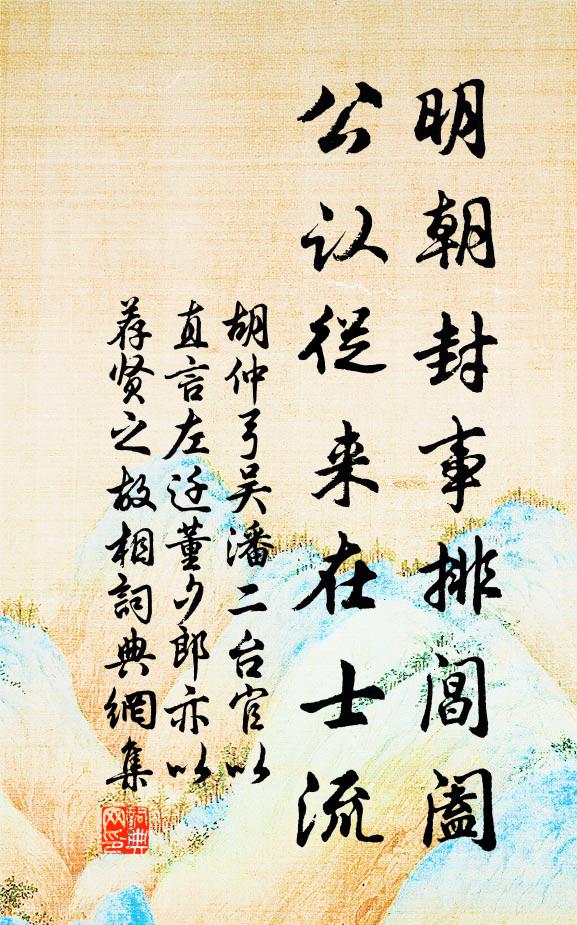 明朝封事排閶闔
公议從来在士流
胡仲弓吴潘二台官以
直言左迁董少郎亦以
荐贤之故相詞典網集
詞典
网印